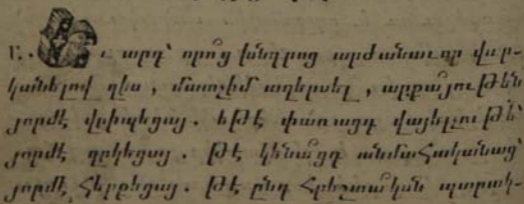 ւ արդ՝ որո՞ց խնդրոց արժանաւոր վար-
կանելով զիս , մատչիմ աղերսել , արքայութե՞ն
յորմէ վրիպեցայ . եթէ փառացդ վայելչութե՞ն՝
յորմէ զրկեցայ . թէ կենա՞ցդ անմահականաց՝
յորմէ հերքեցայ . թէ ընդ հրեշտա՞կան պարակ-